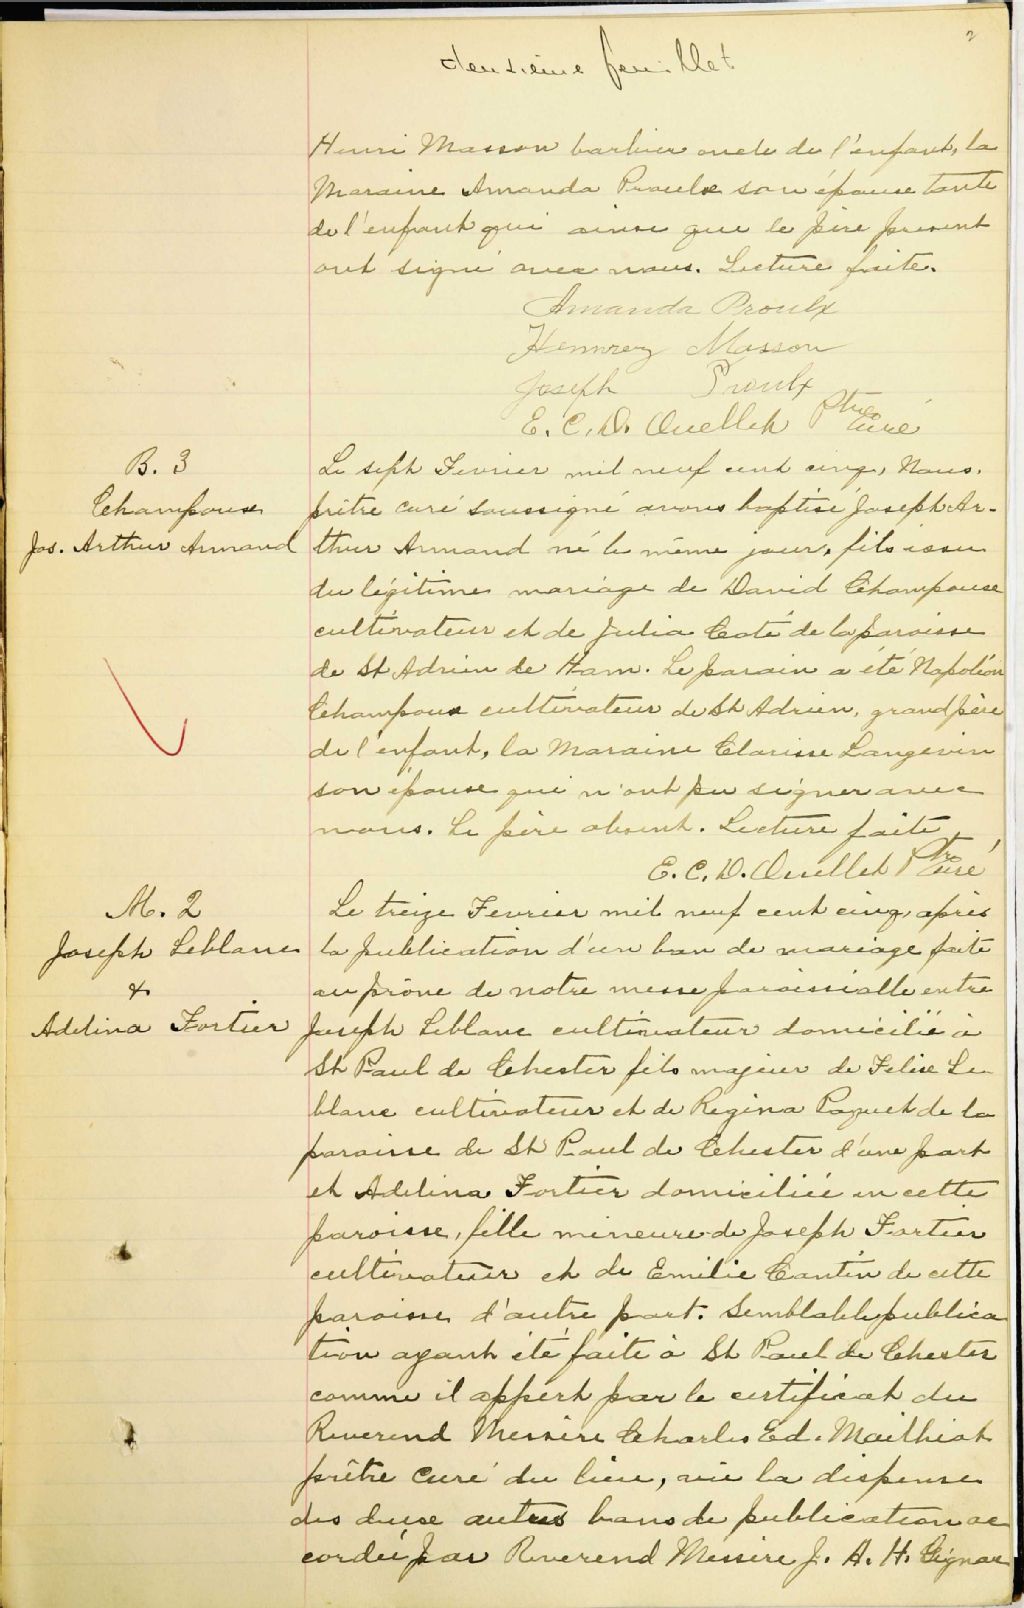 2
deuxième feuillet
Henri Masson barbier oncle de l'enfant, la
Maraine Amanda Proulx son épouse tante
de l'enfant qui ainsi que le père présent
ont signé avec nous. Lecture faite.
Amanda Proulx
Hennrey Masson
Joseph Proulx
E. C. D. Ouellet Ptre Curé
B. 3
Champoux
Jos. Arthur Armand
Le sept Fevrier mil neuf cent cinq, Nous,
prêtre curé soussigné avons baptisé Joseph Ar-
thur Armand né le même jour, fils issu
du légitime mariage de David Champoux
cultivateur et de Julia Coté de la paroisse
de St Adrien de Ham. Le parain a été Napoléon
Champoux cultivateur de St Adrien, grand père
de l'enfant, la Maraine Clarisse Langevin
son épouse qui n'ont pu signer avec
nous. Le père absent. Lecture faite,
E. C. D. Ouellet Ptre Curé
M. 2
Joseph Leblanc
&
Adelina Fortier
Le treize Fevrier mil neuf cent cinq, après
la publication d'un ban de mariage faite
au prône de notre messe paroissialle entre
Joseph Leblanc cultivateur domicilié à
St Paul de Chester fils majeur de Felix Le
blanc cultivateur et de Regina Paquet de la
paroisse de St Paul de Chester d'une part
et Adelina Fortier domiciliée en cette
paroisse, fille mineure de Joseph Fortier
cultivateur et de Emilie Cantin de cette
paroisse d'autre part. Semblable publica
tion ayant été faite à St Paul de Chester
comme il appert par le certificat du
Reverend Messire Charles Ed. Mailhiot
prêtre curé du lieu, vu la dispense
des deux autres bans de publication ac
cordée par Reverend Messire J. A. H. Gignac